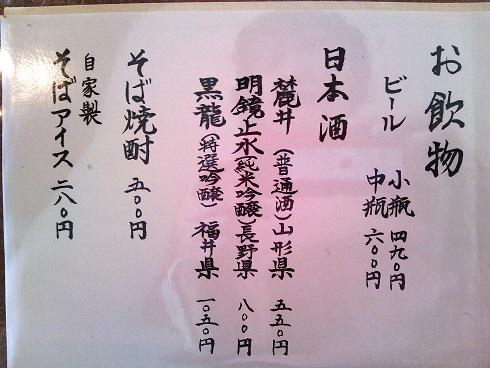 お飲物
ビール 小瓶 四九〇円
中瓶 六〇〇円
日本酒
麓井(普通酒)山形県 五五〇円
明鏡止水(純米吟醸)長野県 八〇〇円
黒龍(特選吟醸)福井県 一〇五〇円
そば焼酎 五〇〇円
自家製
そばアイス 二八〇円